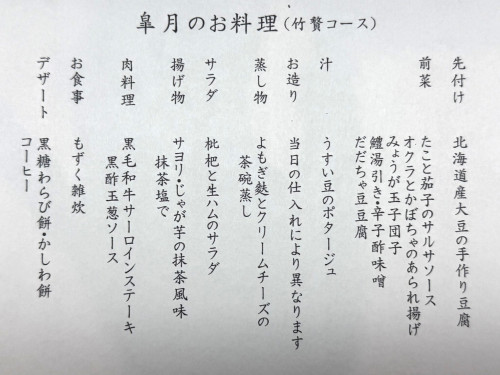 皐月のお料理(竹贅コース)
先付け 北海道産大豆の手作り豆腐
前菜 たこと茄子のサルサソース
オクラとかぼちゃのあられ揚げ
みょうが玉子団子
鱧湯引き・辛子酢味噌
だだちゃ豆豆腐
汁 うすい豆のポタージュ
お造り 当日の仕入れにより異なります
蒸し物 よもぎ麩とクリームチーズの
茶碗蒸し
サラダ 枇杷と生ハムのサラダ
揚げ物 サヨリ・じゃが芋の抹茶風味
抹茶塩で
肉料理 黒毛和牛サーロインステーキ
黒酢玉葱ソース
お食事 もずく雑炊
デザート 黒糖わらび餅・かしわ餅
コーヒー